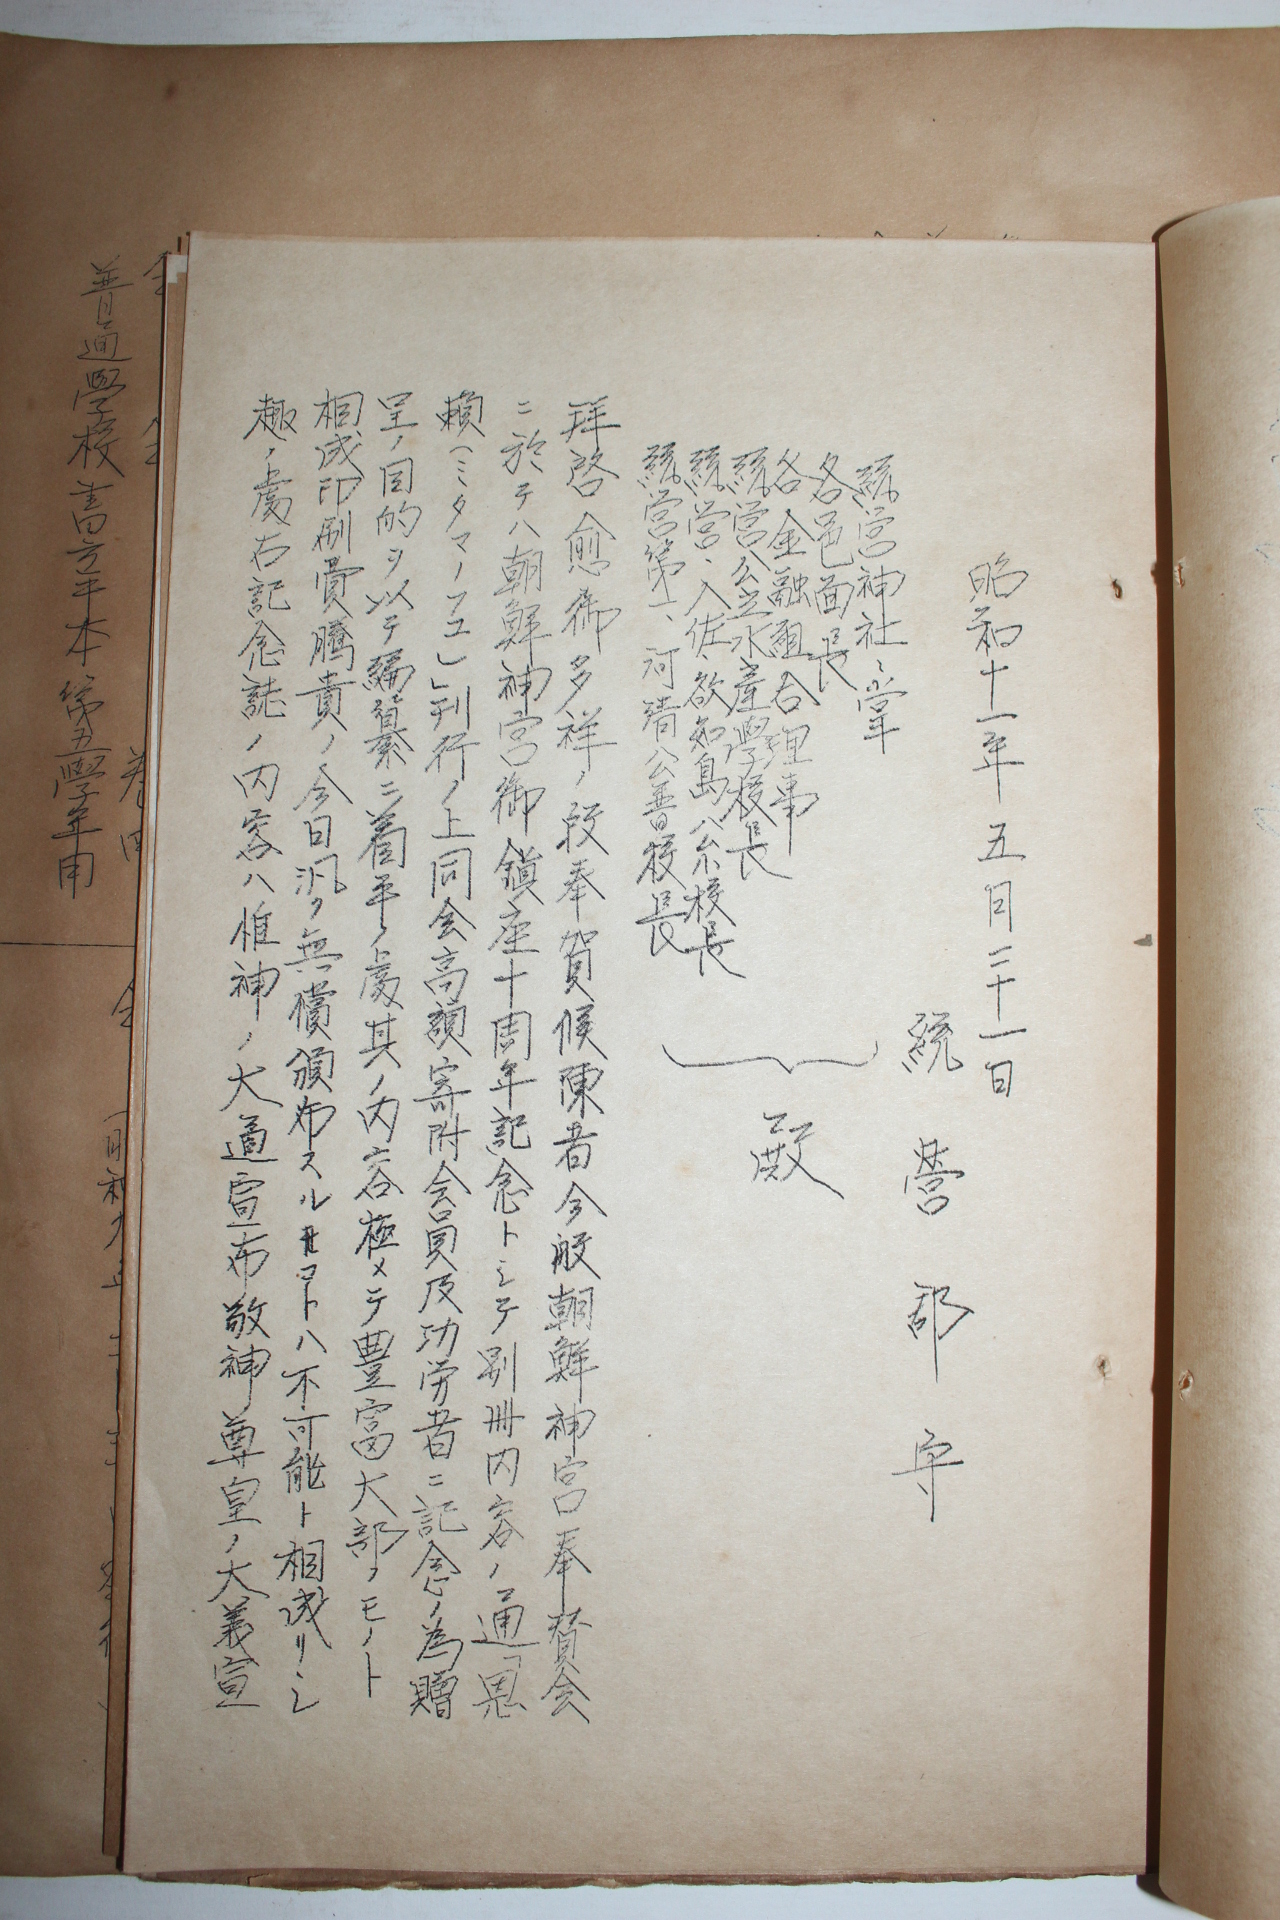 昭和十一年五月二十一日
統營郡守
統營神社々掌
各邑面長
各金融組合理事
統營公立水産學校長
統營、入佐、欲知島公小校長
統營第一、河清公普校長
殿
拝啓愈御多祥ノ段奉賀候陳者今般朝鮮神宮奉賛会
ニ於テハ朝鮮神宮御鎮座十周年記念トシテ別冊内容ノ通「恩
頼(ミタマノフユ)」刊行ノ上同会高額寄附会員及功労者ニ記念ノ為贈
呈ノ目的ヲ以テ編纂ニ着手ノ處其ノ内容極メテ豊富大部ノモノト
相成印刷費騰貴ノ今日汎ク無償頒布スルコトハ不可能ト相成リシ
趣ノ處右記念誌ノ内容ハ惟神ノ大道宣布敬神尊皇ノ大義宣
普通學校書方手本第五學年用